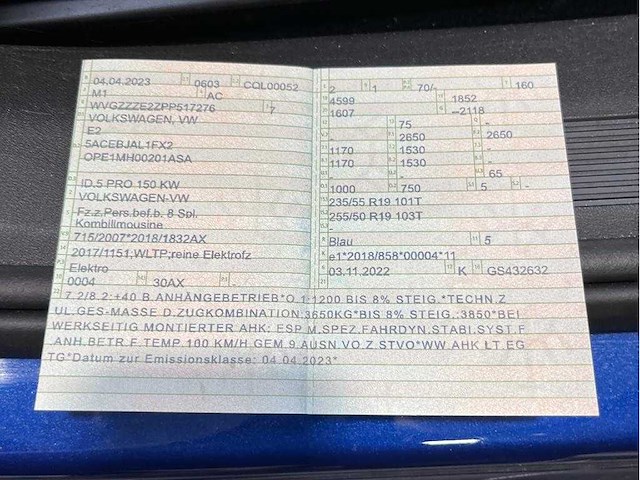 04.04.2023 0603 CQL00052
M1 AC
WVGZZZE2ZPP517276 7
VOLKSWAGEN, VW
E2
5ACEBJAL1FX2
OPE1MH00201ASA
ID.5 PRO 150 KW
VOLKSWAGEN-VW
Fz.z.Pers.bef.b. 8 Spl.
Kombilimousine
715/2007*2018/1832AX
2017/1151;WLTP;reine Elektrofz
Elektro
0004 30AX -
2 1 70/- 160
4599 1852
1607 --2118
75 -
2650 2650
1170 1530 -
1170 1530 -
65
1000 750 5 -
235/55 R19 101T
255/50 R19 103T
-
Blau 5
e1*2018/858*00004*11
03.11.2022 K GS432632
7.2/8.2:+40 B.ANHÄNGEBETRIEB*O.1:1200 BIS 8% STEIG.*TECHN.Z
UL.GES-MASSE D.ZUGKOMBINATION:3650KG*BIS 8% STEIG.:3850*BEI
WERKSEITIG MONTIERTER AHK: ESP M.SPEZ.FAHRDYN.STABI.SYST.F
.ANH.BETR.F.TEMP.100 KM/H.GEM.9.AUSN.VO.Z.STVO*WW.AHK LT.EG
TG*Datum zur Emissionsklasse: 04.04.2023*